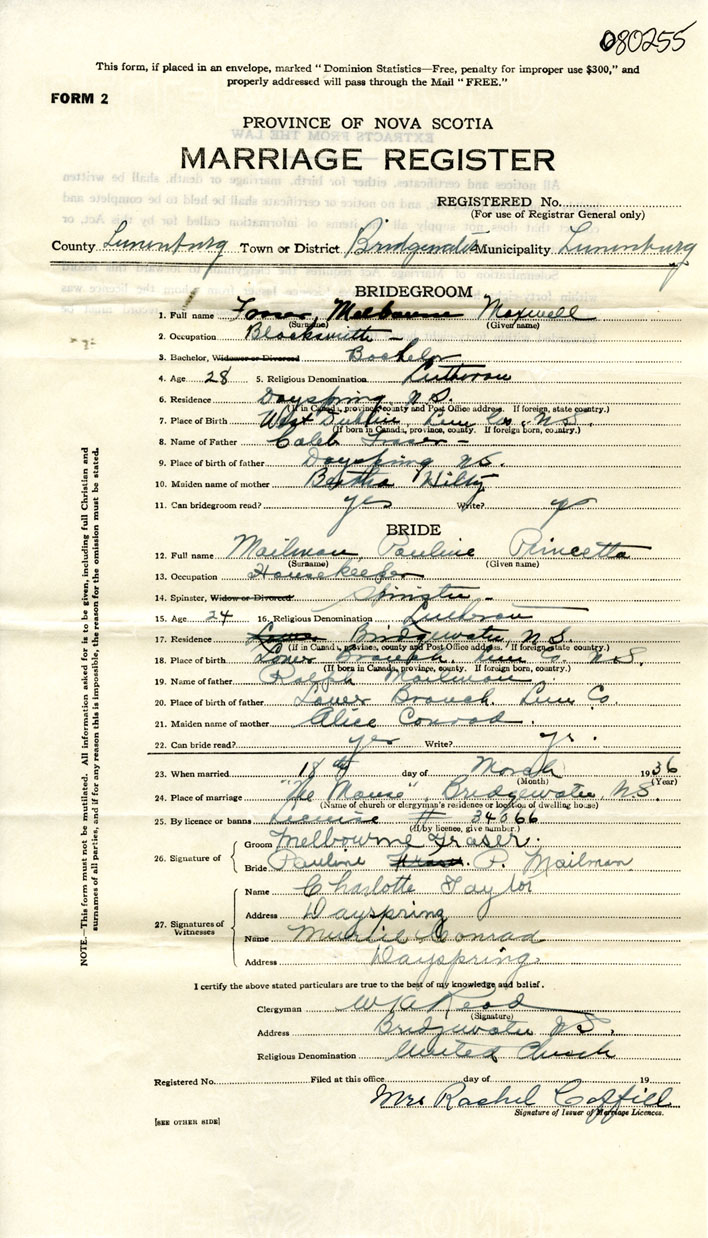 080255
This form, if placed in an envelope, marked “Dominion Statistics—Free, penalty for improper use $300,” and
properly addressed will pass through the Mail “FREE.”
FORM 2
PROVINCE OF NOVA SCOTIA
MARRIAGE REGISTER
REGISTERED No.
(For use of Registrar General only)
County Lunenburg Town or District Bridgewater Municipality Lunenburg
BRIDEGROOM
1. Full name Fraser, Melbourne Maxwell
(Surname) (Given name)
2. Occupation Blacksmith -
3. Bachelor, Widower or Divorced Bachelor
4. Age 28 5. Religious Denomination Lutheran
6. Residence Dayspring N.S.
(If in Canada, province, county and Post Office address. If foreign, state country.)
7. Place of Birth West Dublin, Lun Co., N.S.
(If born in Canada, province, county. If foreign born, country.)
8. Name of Father Caleb Fraser -
9. Place of birth of father Dayspring N.S.
10. Maiden name of mother Bertha
11. Can bridegroom read? yes Write? yes
BRIDE
12. Full name Mailman, Pauline Princetta
(Surname) (Given name)
13. Occupation Housekeeper
14. Spinster, Widow or Divorced Spinster -
15. Age 24 16. Religious Denomination Lutheran
17. Residence Bridgewater, N.S.
(If in Canada, province, county and Post Office address. If foreign, state country.)
18. Place of birth Lower Branch, Lun Co. N.S.
(If born in Canada, province, county. If foreign born, country.)
19. Name of father Ralph Mailman
20. Place of birth of father Lower Branch, Lun Co.
21. Maiden name of mother Alice Conrad.
22. Can bride read? yes Write? yes.
23. When married 18th day of March 1936
(Month) (Year)
24. Place of marriage "The Manse", Bridgewater, N.S.
(Name of church or clergyman's residence or location of dwelling house)
25. By licence or banns License # 34366
(If by licence, give number.)
26. Signature of
Groom Melbourne Fraser.
Bride Pauline P. Mailman
27. Signatures of Witnesses
Name Charlotte Taylor
Address Dayspring
Name Conrad
Address Dayspring.
I certify the above stated particulars are true to the best of my knowledge and belief.
Clergyman W A Read
(Signature)
Address Bridgewater N.S.
Religious Denomination United Church
Registered No. Filed at this office day of 19
Mrs Rachel
Signature of Issuer of Marriage Licences.
[SEE OTHER SIDE]
NOTE.—This form must not be mutilated. All information asked for is to be given, including full Christian and
surnames of all parties, and if for any reason this is impossible, the reason for the omission must be stated.